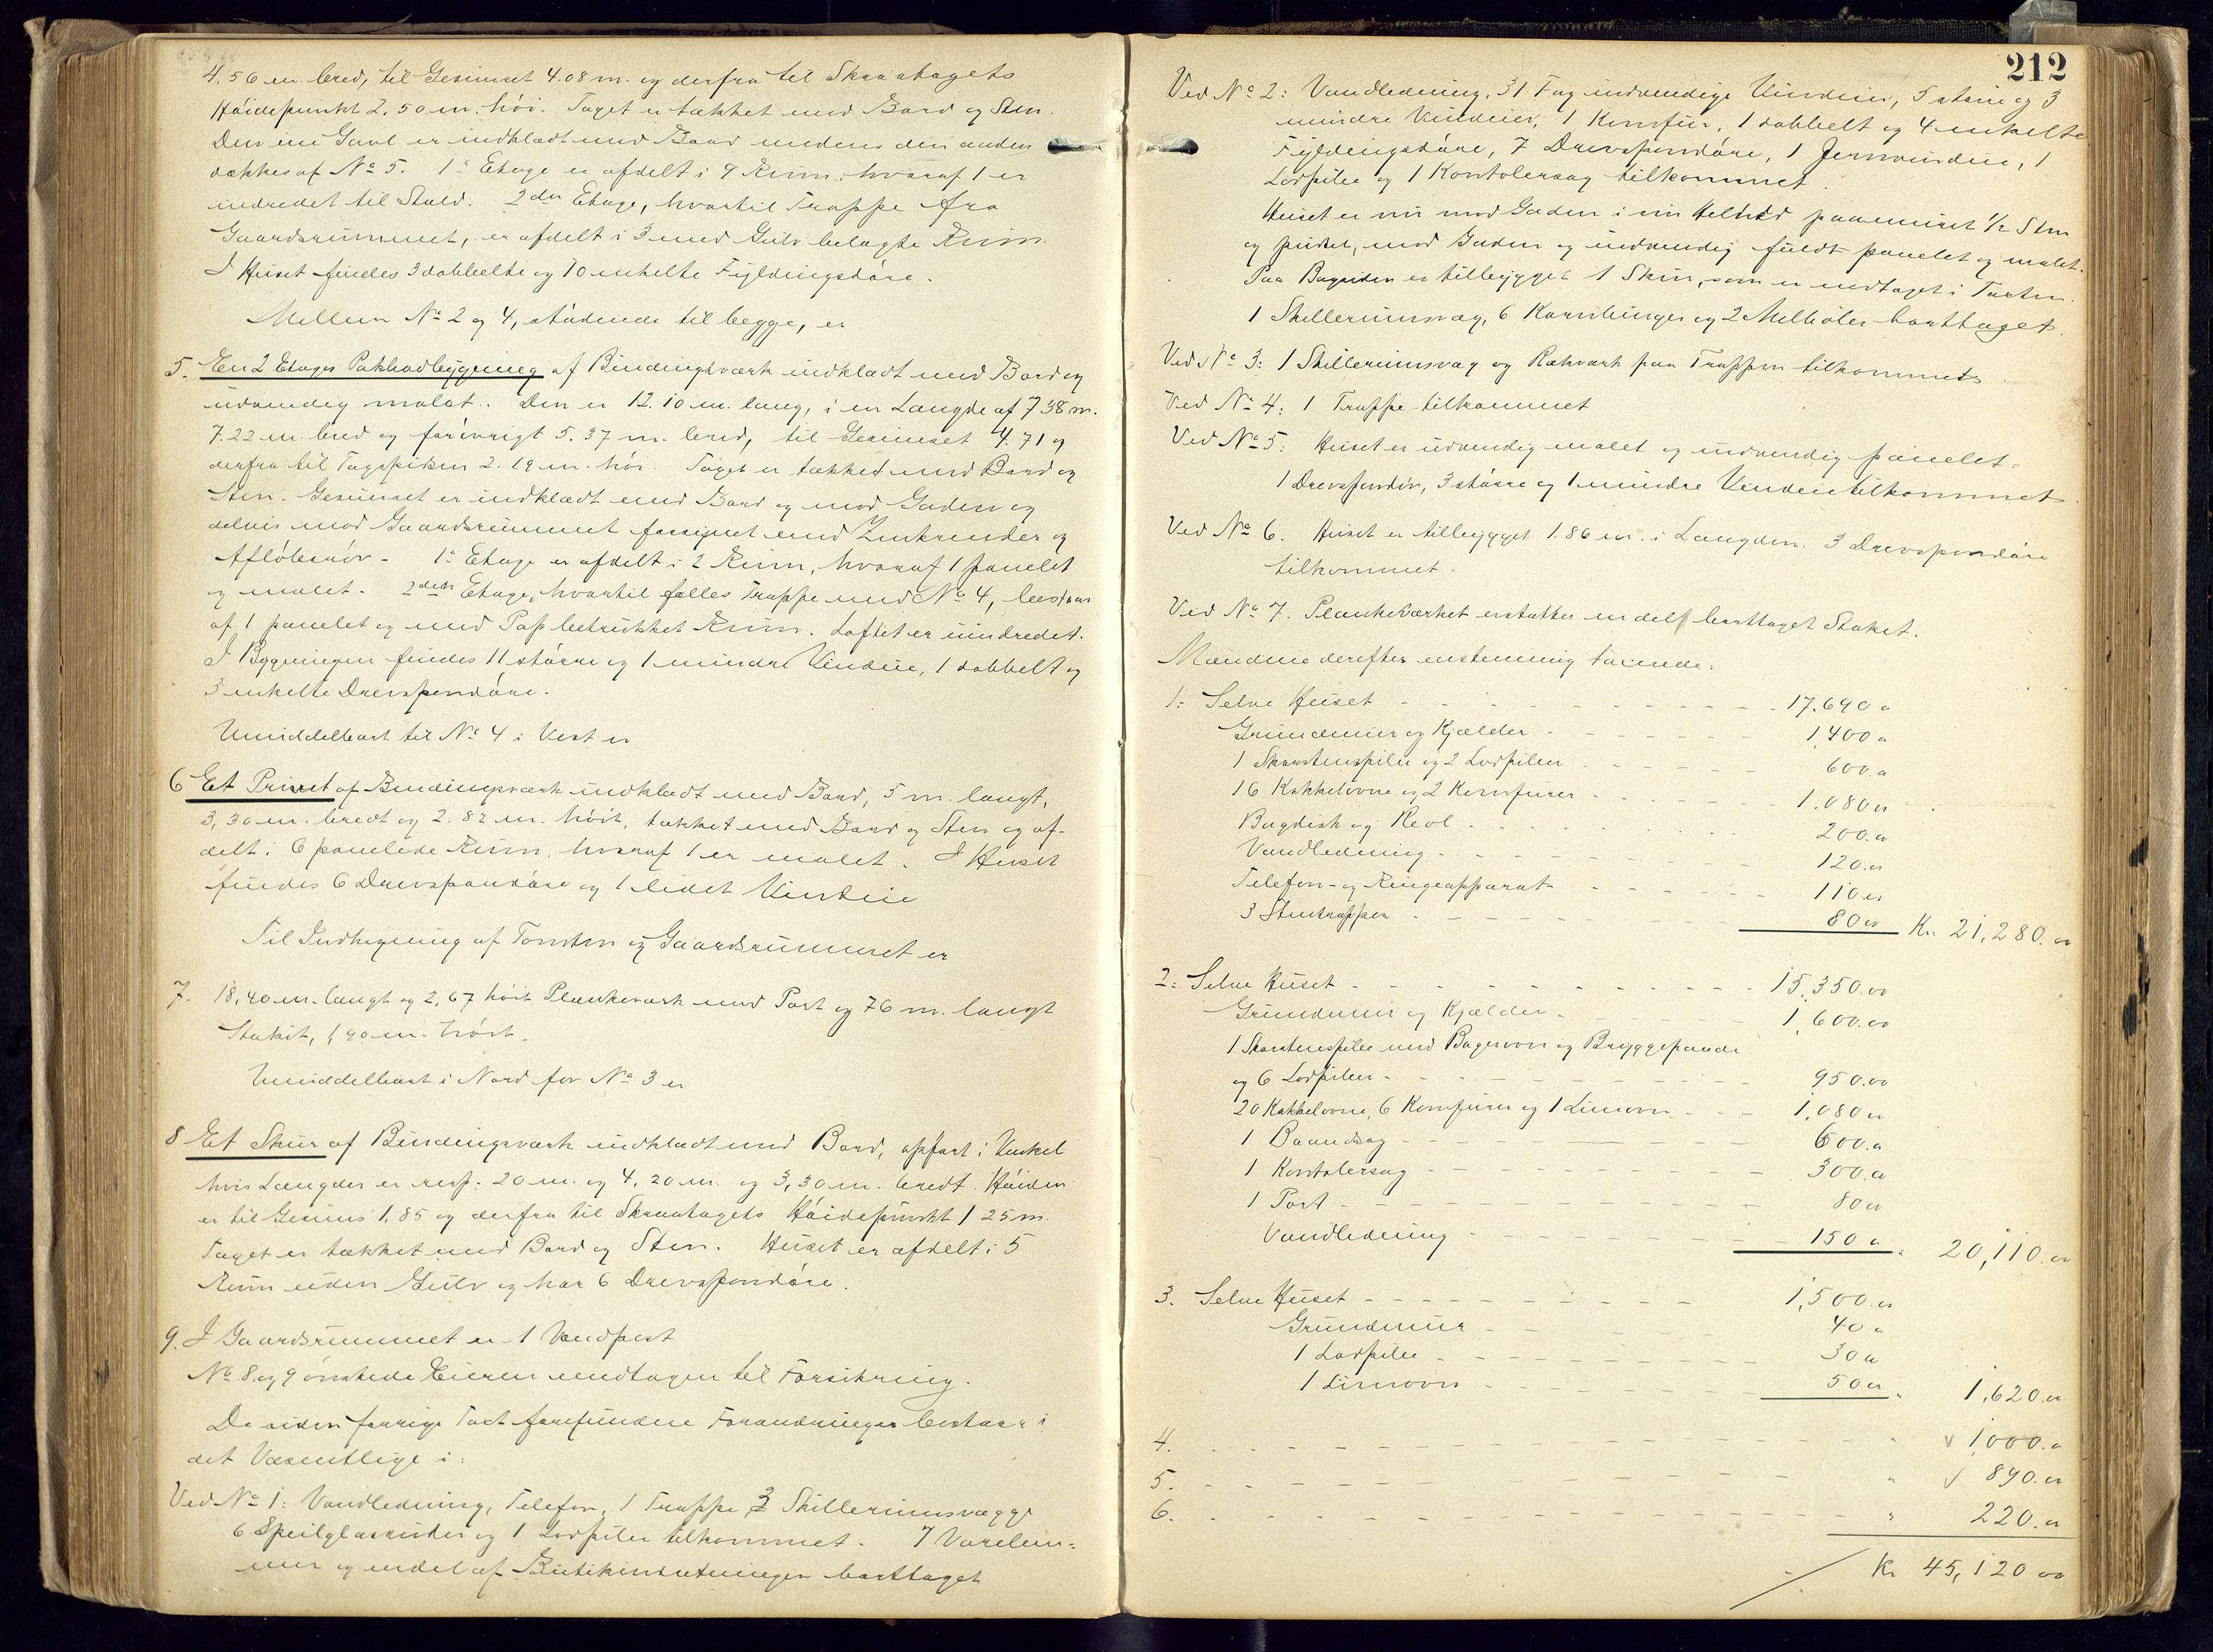 4.56 m. bred, til Gesimset 4.08 m. og derfra til Skraatagets
Høidepunkt 2.50 m. høi. Taget er tækket med Bord og Sten.
Den ene Gavl er indklædt med Bord medens den anden
dækkes af No 5. 1ste Etage er afdelt i 9 Rum, hvoraf 1 er
indredet til Stald. 2den Etage, hvortil Trappe fra
Gaardsrummet, er afdelt i 3 med Gulv belagte Rum.
I Huset findes 3 dobbelte og 10 enkelte Fyldingsdøre.
Mellem No 2 og 4, stødende til begge, er
5. En 2 Etages Pakbodbygning af Bindingsværk indklædt med Bord og
udvendig malet. Den er 12.10 m. lang, i en Længde af 7 38 m.
7.22 m. bred og forøvrigt 5.37 m. bred, til Gesimset 4.71 og
derfra til Tagspidsen 2.19 m. høi. Taget er tækket med Bord og
Sten. Gesimset er indklædt med Bord og mod Gaden og
delvis mod Gaardsrummet forsynet med Zinkrender og
Afløbsrør. 1ste Etage er afdelt i 2 Rum, hvoraf 1 panelet
og malet. 2den Etage, hvortil fælles Trappe med No 4, bestaar
af 1 panelet og med Pap betrukket Rum. Loftet er uindredet.
I Bygningen findes 11 større og 1 mindre Vindue, 1 dobbelt og
3 enkelte Drevspendøre.
Umiddelbart til No 4 i Vest er
6 Et Privet af Bindingsværk indklædt med Bord, 5 m. langt,
3,30 m. bredt og 2.82 m. høit, tækket med Bord og Sten og af-
delt i 6 panelede Rum, hvoraf 1 er malet. I Huset
findes 6 Drevspendøre og 1 lidet Vindue
Til Indhegning af Tomten og Gaardsrummet er
7. 18,40 m. langt og 2,67 høit Plankeværk med Port og 76 m. langt
Stakit, 1,90 m. høit.
Umiddelbart i Nord for No 3 er
8 Et Skur af Bindingsværk indklædt med Bord, opført i Vinkel
hvis Længder er resp: 20 m. og 4,20 m. og 3,30 m. bredt. Høiden
er til Gesims 1,85 og derfra til Skraatagets Høidepunkt 1 25 m.
Taget er tækket med Bord og Sten. Huset er afdelt i 5
Rum uden Gulv og har 6 Drevspendøre.
9. I Gaardsrummet er 1 Vandpost
No 8 og 9 ønskede Eieren undtagen til Forsikring.
De siden forrige Taxt forefundne Forandringer bestaar i
det Væsentlige i:
Ved No 1: Vandledning, Telefon, 1 Trappe, 3 Skillerumsvægge
6 Speilglasruder og 1 Lodpibe tilkommet. 7 Varelem-
mer og endel af Butikindretningen borttaget
212
Ved No 2: Vandledning, 31 Fag indvendige Vinduer, 5 større og 3
mindre Vinduer, 1 Komfur, 1 dobbelt og 4 enkelte
Fyldingsdøre, 7 Drevspendøre, 1 Jernvindue, 1
Lodpibe og 1 Kontolersag tilkommet.
Huset er nu mod Gaden i sin Helhed paamuret 1/2 Sten
og pudset, mod Gaden og indvendig fuldt panelet og malet.
Paa Bagsiden er tilbygget 1 Skur, som er medtaget i Taxten.
1 Skillerumsvæg, 6 Kornbinger og 2 Melbøler borttaget.
Ved No 3: 1 Skillerumsvæg og Rækværk paa Trappen tilkommet.
Ved No 4: 1 Trappe tilkommet
Ved No 5: Huset er udvendig malet og indvendig panelet.
1 Drevspendør, 3 større og 1 mindre Vindue tilkommet.
Ved No 6. Huset er tilbygget 1.86 m. i Længden. 3 Drevspendøre
tilkommet.
Ved No 7. Plankeværket erstatter en del borttaget Stakit.
Mændene derefter enstemmig taxerede:
1: Selve Huset - - - 17.690 "
Grundmur og Kjælder - - - 1,400 "
1 Skorstenspibe og 2 Lodpiber - - - 600 "
16 Kakkelovne og 2 Komfurer - - - 1.080 "
Bagdisk og Reol - - - 200. "
Vandledning - - - 120. "
Telefon- og Ringeapparat - - - 110 "
3 Stentrapper - - - 80 " Kr. 21,280. "
2: Selve Huset - - - 15,350.00
Grundmur og Kjælder - - - 1,600.00
1 Skorstenspibe med Bagerovn og Bryggepande
og 6 Lodpiber - - - 950.00
20 Kakkelovne, 6 Komfurer og 1 Limovn - - - 1,080 "
1 Baandsag - - - 600. "
1 Kontolersag - - - 300. "
1 Port - - - 80 "
Vandledning - - - 150 " " 20,110. "
3. Selve Huset - - - 1,500. "
Grundmur - - - 40 "
1 Lodpibe - - - 30 "
1 Limovn - - - 50 " " 1,620. "
4. - - - " √ 1,000. "
5. - - - " √ 890. "
6. - - - " 220. "
Kr 45,120 00